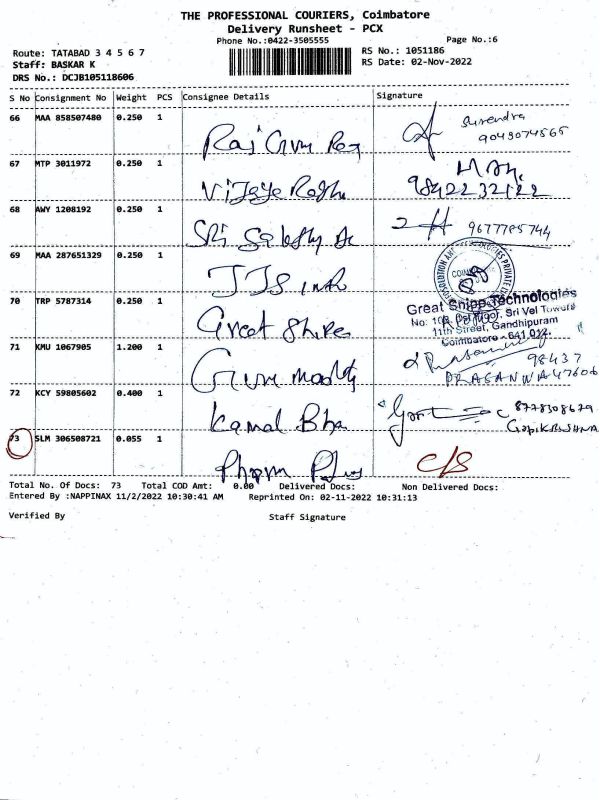 THE PROFESSIONAL COURIERS, Coimbatore
Delivery Runsheet - PCX
Phone No.:0422-3505555
Page No.:6
Route: TATABAD 3 4 5 6 7
RS No.: 1051186
Staff: BASKAR K
RS Date: 02-Nov-2022
DRS No.: DCJB105118606
S No Consignment No Weight PCS Consignee Details Signature
66 MAA 858507480 0.250 1
Surendra
9043074565
67 MTP 3011972 0.250 1
9842232122
68 AWY 1208192 0.250 1
Sri
9677785744
69 MAA 287651329 0.250 1
COIMB
70 TRP 5787314 0.250 1
Great
Great Shipp Technologies
Floor, Sri Vel Towers
11th Street, Gandhipuram
Coimbatore - 641 012.
71 KMU 1067905 1.200 1
98437
PRASANNA 47606
72 KCY 59805602 0.400 1
Kamal Bha
8778308679
GopiKRISHNA
73 SLM 306508721 0.055 1
C/S
Total No. Of Docs: 73 Total COD Amt: 0.00 Delivered Docs: Non Delivered Docs:
Entered By :NAPPINAX 11/2/2022 10:30:41 AM Reprinted On: 02-11-2022 10:31:13
Verified By Staff Signature